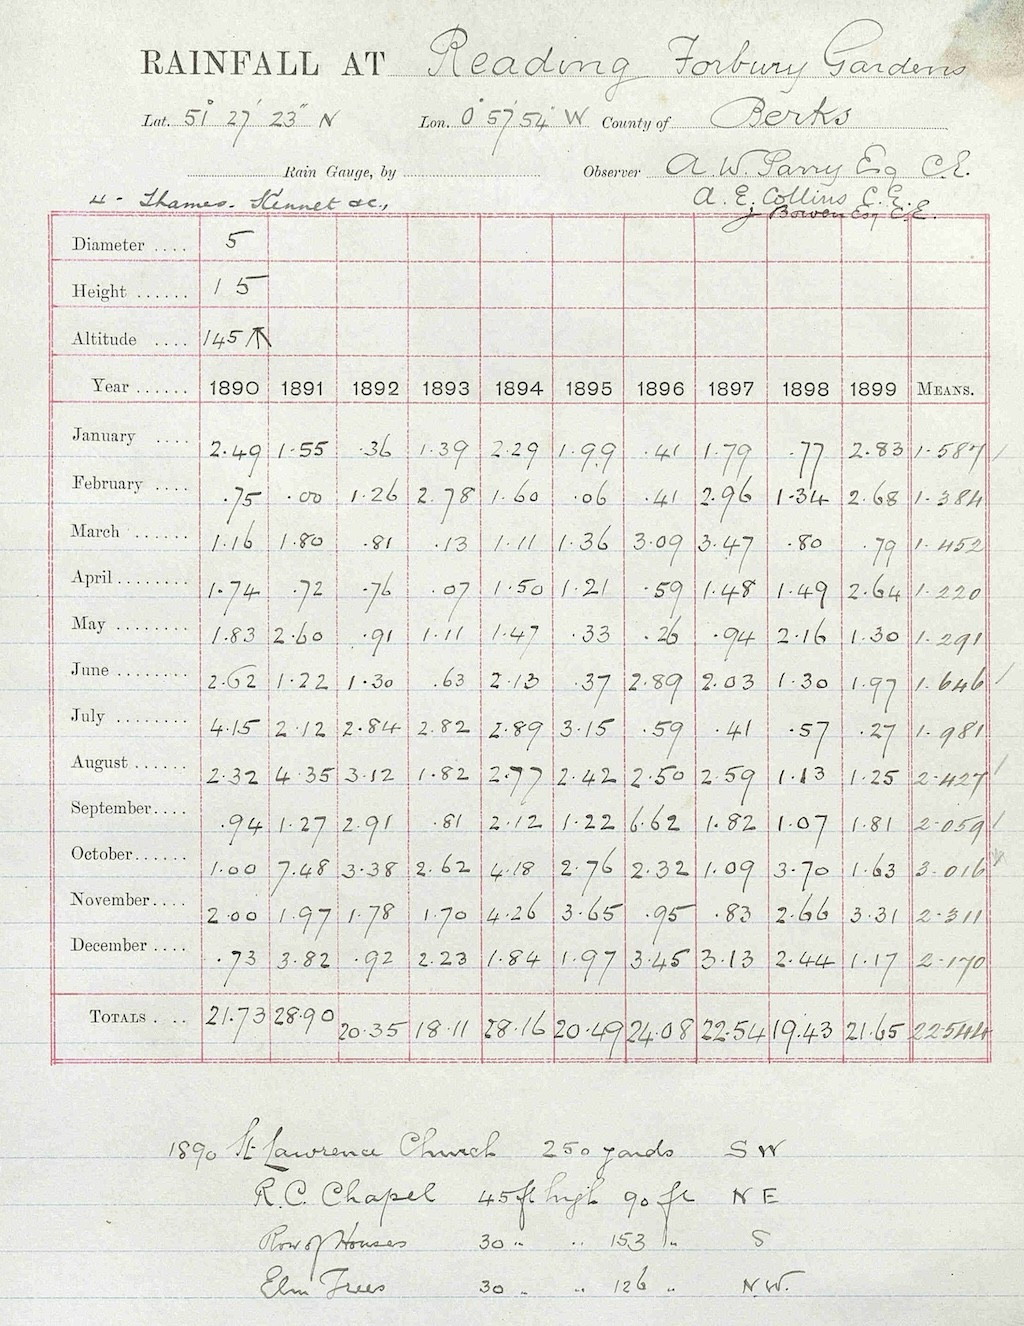 RAINFALL AT Reading Forbury Gardens
Lat. 51° 27' 23" N Lon. 0° 57' 54" W County of Berks
Rain Gauge, by Observer A. W. Parry Esq C.E.
4 - Thames. Kennet &c., A. E. Collins C.E.
J Bowen Esq C.E.
Diameter .... 5
Height ...... 1 5
Altitude .... 145
Year ...... 1890 1891 1892 1893 1894 1895 1896 1897 1898 1899 MEANS.
January .... 2.49 1.55 .36 1.39 2.29 1.99 .41 1.79 .77 2.83 1.587
February .... .75 .00 1.26 2.78 1.60 .06 .41 2.96 1.34 2.68 1.384
March ...... 1.16 1.80 .81 .13 1.11 1.36 3.09 3.47 .80 .79 1.452
April ........ 1.74 .72 .76 .07 1.50 1.21 .59 1.48 1.49 2.64 1.220
May ........ 1.83 2.60 .91 1.11 1.47 .33 .26 .94 2.16 1.30 1.291
June ........ 2.62 1.22 1.30 .63 2.13 .37 2.89 2.03 1.30 1.97 1.646
July ........ 4.15 2.12 2.84 2.82 2.89 3.15 .59 .41 .57 .27 1.981
August ...... 2.32 4.35 3.12 1.82 2.77 2.42 2.50 2.59 1.13 1.25 2.427
September.... .94 1.27 2.91 .81 2.12 1.22 6.62 1.82 1.07 1.81 2.059
October...... 1.00 7.48 3.38 2.62 4.18 2.76 2.32 1.09 3.70 1.63 3.016
November.... 2.00 1.97 1.78 1.70 4.26 3.65 .95 .83 2.66 3.31 2.311
December .... .73 3.82 .92 2.23 1.84 1.97 3.45 3.13 2.44 1.17 2.170
TOTALS . .. 21.73 28.90 20.35 18.11 28.16 20.49 24.08 22.54 19.43 21.65 22.544
1890 St Lawrence Church 250 yards S W
R.C. Chapel 45 ft high 90 ft N E
Row of Houses 30 " " 153 " S
Elm Trees 30 " " 126 " N.W.